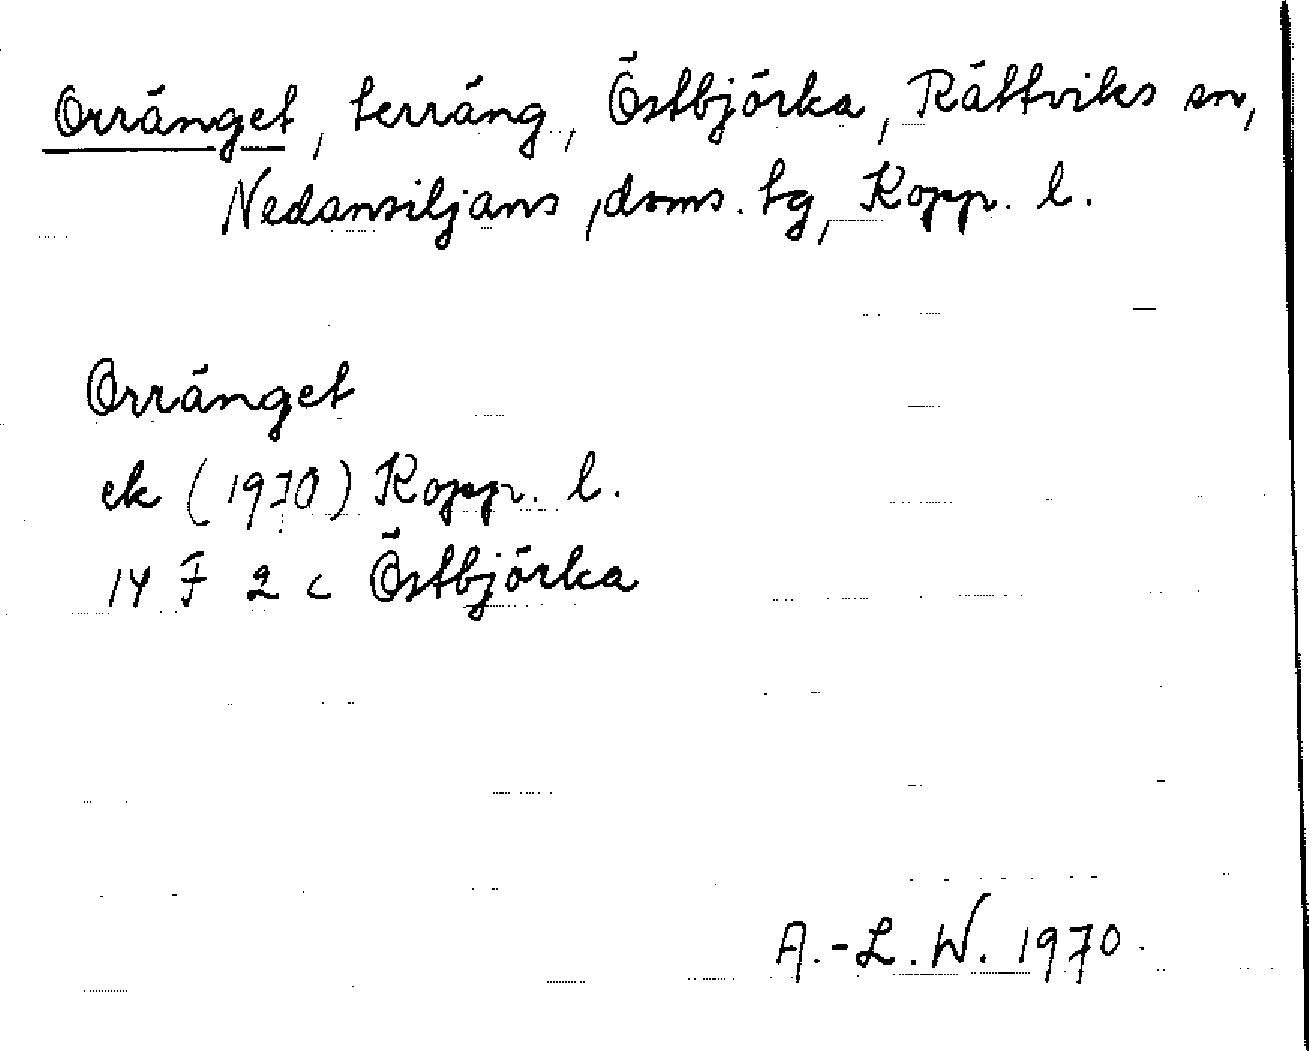 Orränget, terräng, Östbjörka, Rättviks sn,
Nedansiljans, doms. tg, Kopp. l.
Orränget
ek (1970) Kopp. l.
14 F 2 c Östbjörka
A.-L. W. 1970.